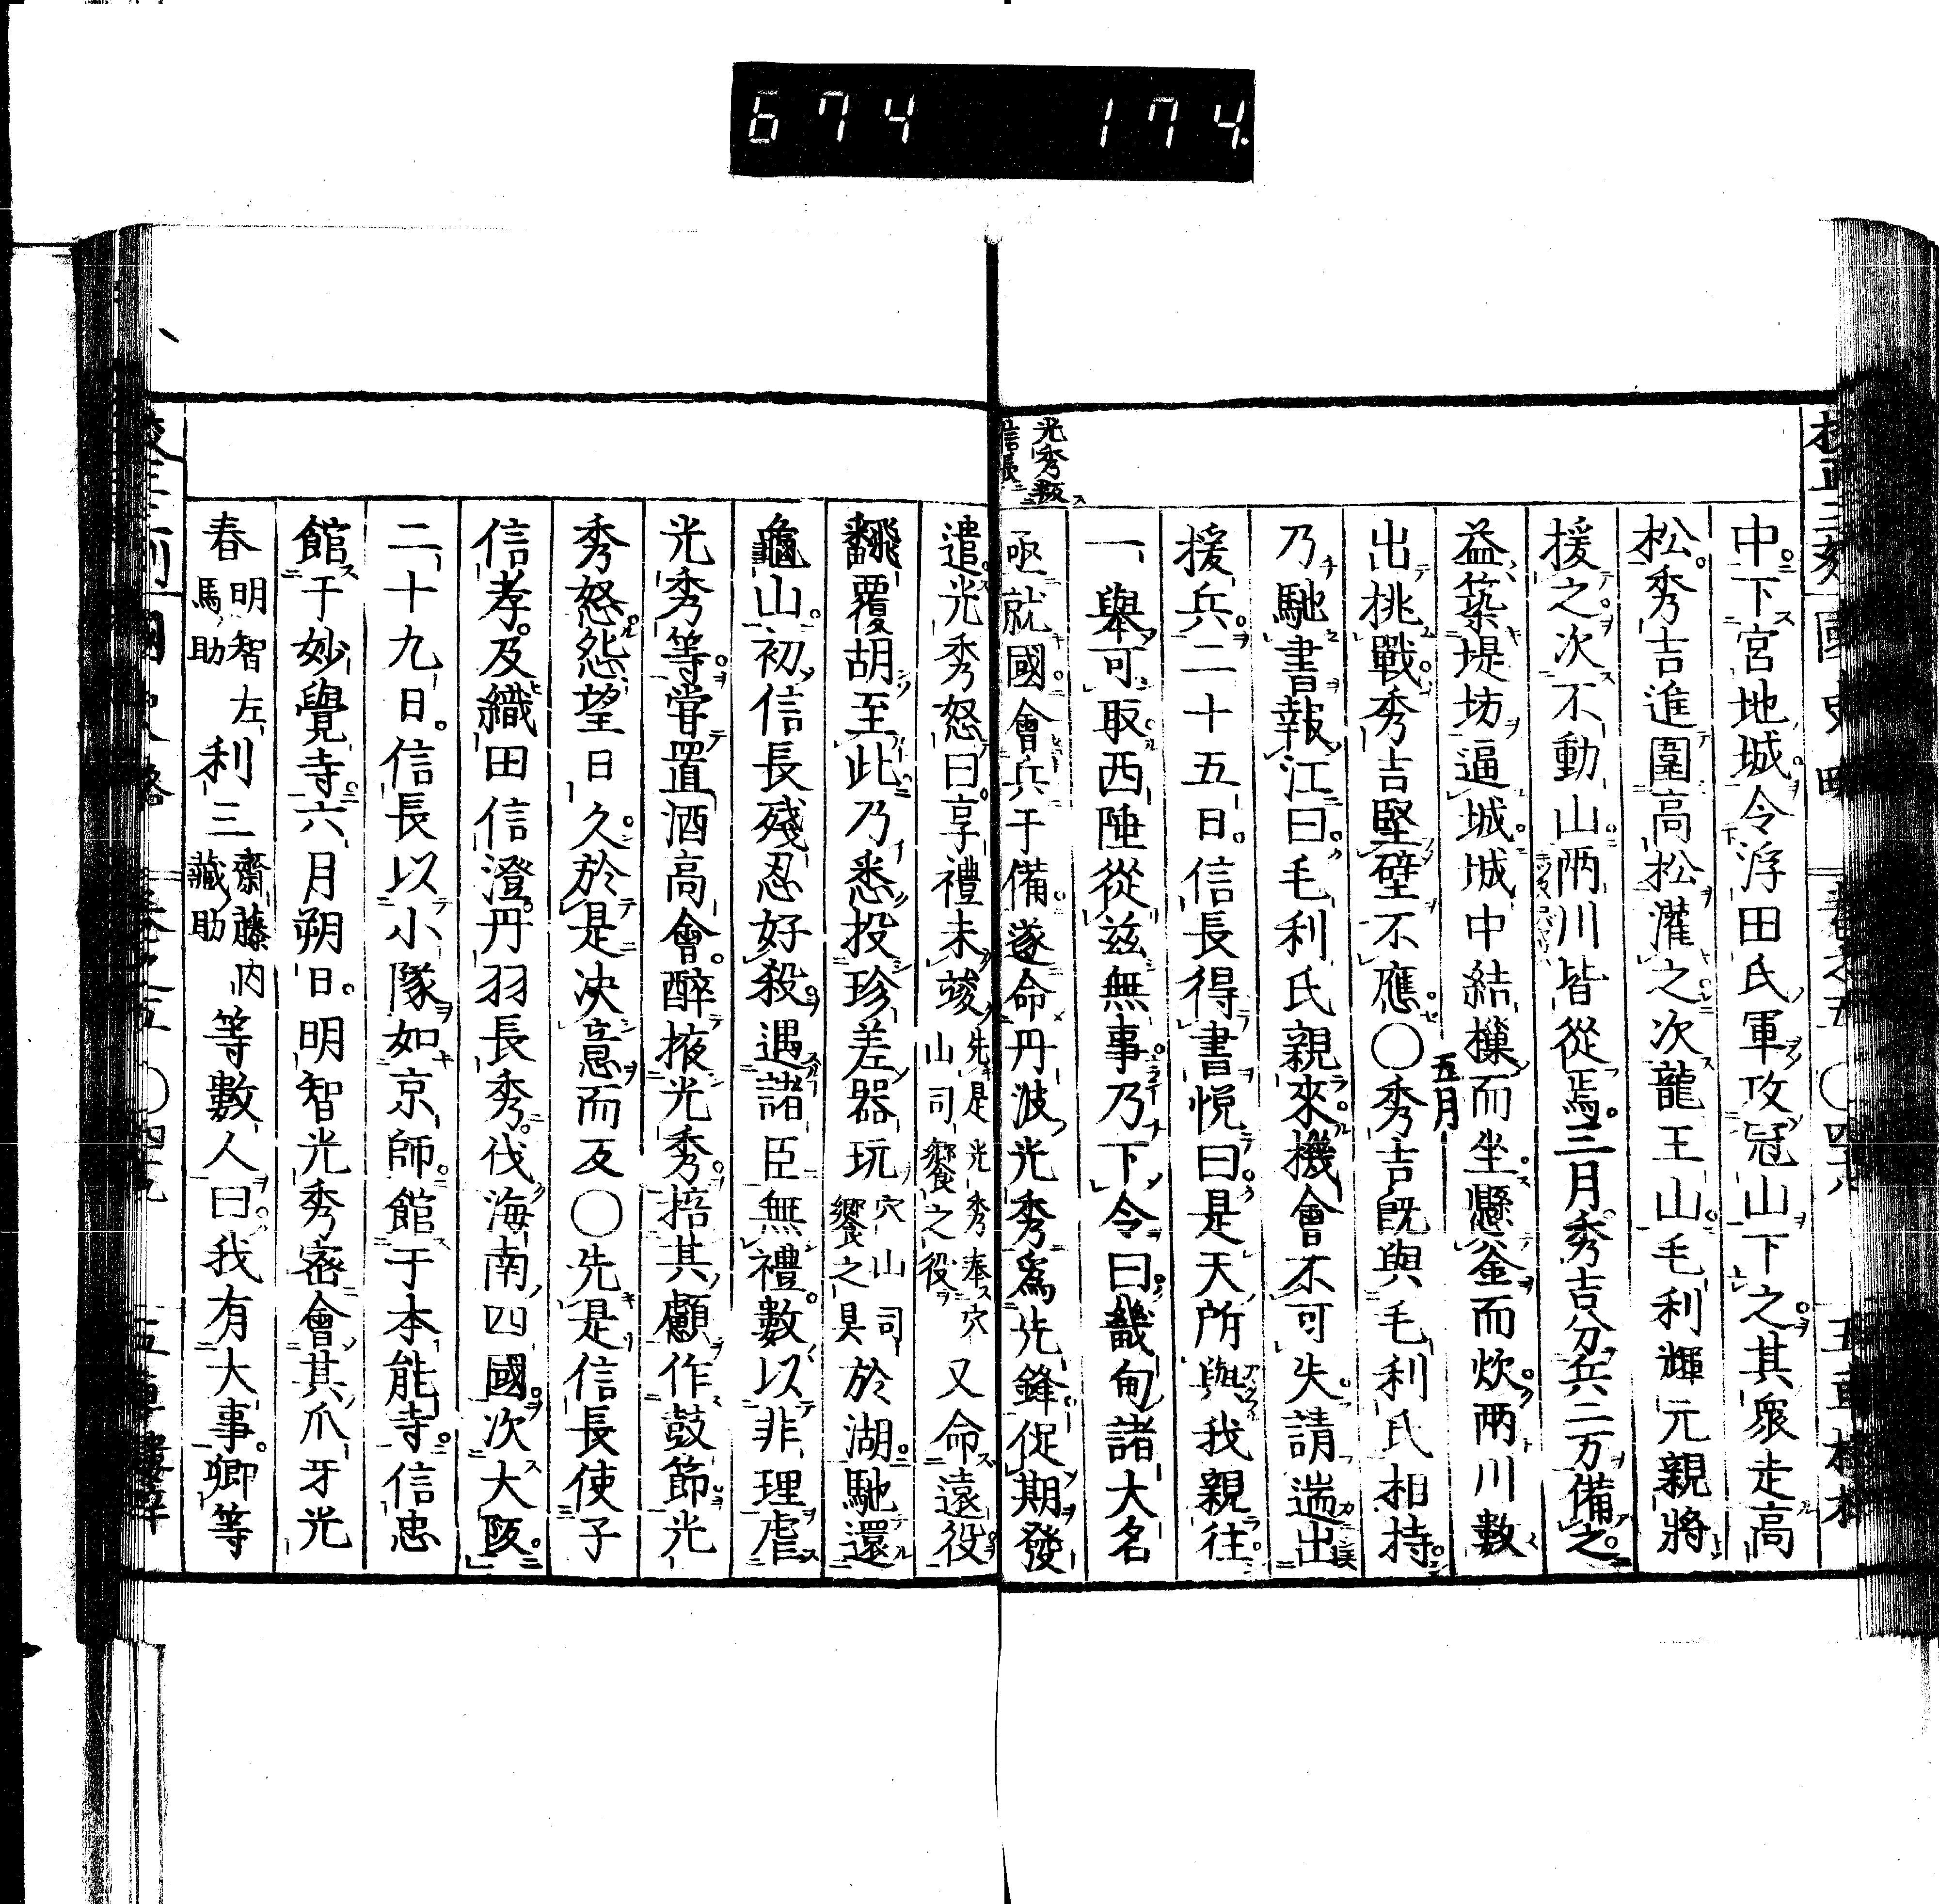 674 174
中下宮地城令浮田氏軍攻冠山下之其衆走高
松秀吉進圍高松灌之次龍王山毛利輝元親將
援之次不動山兩川皆從焉三月秀吉分兵二万備之
益築堤坊逼城城中結樔而坐懸釜而炊兩川數
出挑戰秀吉堅壁不應〇五月秀吉既與毛利氏相持
乃馳書報江曰毛利氏親來機會不可失請遄出
援兵二十五日信長得書悅曰是天所與我親往
一舉可取西陲從兹無事乃下令曰畿甸諸大名
亟就國會兵于備遂命丹波光秀爲先鋒促期發
光秀叛
信長
遣光秀怒曰享禮未竣先是光秀奉穴山司饗之役又命遠役
飜覆胡至此乃悉投珍羞器玩穴山司饗之具於湖馳還
龜山初信長殘忍好殺遇諸臣無禮數以非理虐
光秀等嘗置酒高會醉掖光秀掊其顱作鼓節光
秀怒怨望日久於是决意而反〇先是信長使子
信孝及織田信澄丹羽長秀伐海南四國次大阪
二十九日信長以小隊如京師館于本能寺信忠
館于妙覺寺六月朔日明智光秀密會其爪牙光
春明智左馬助利三齋藤内藏助等數人曰我有大事卿等